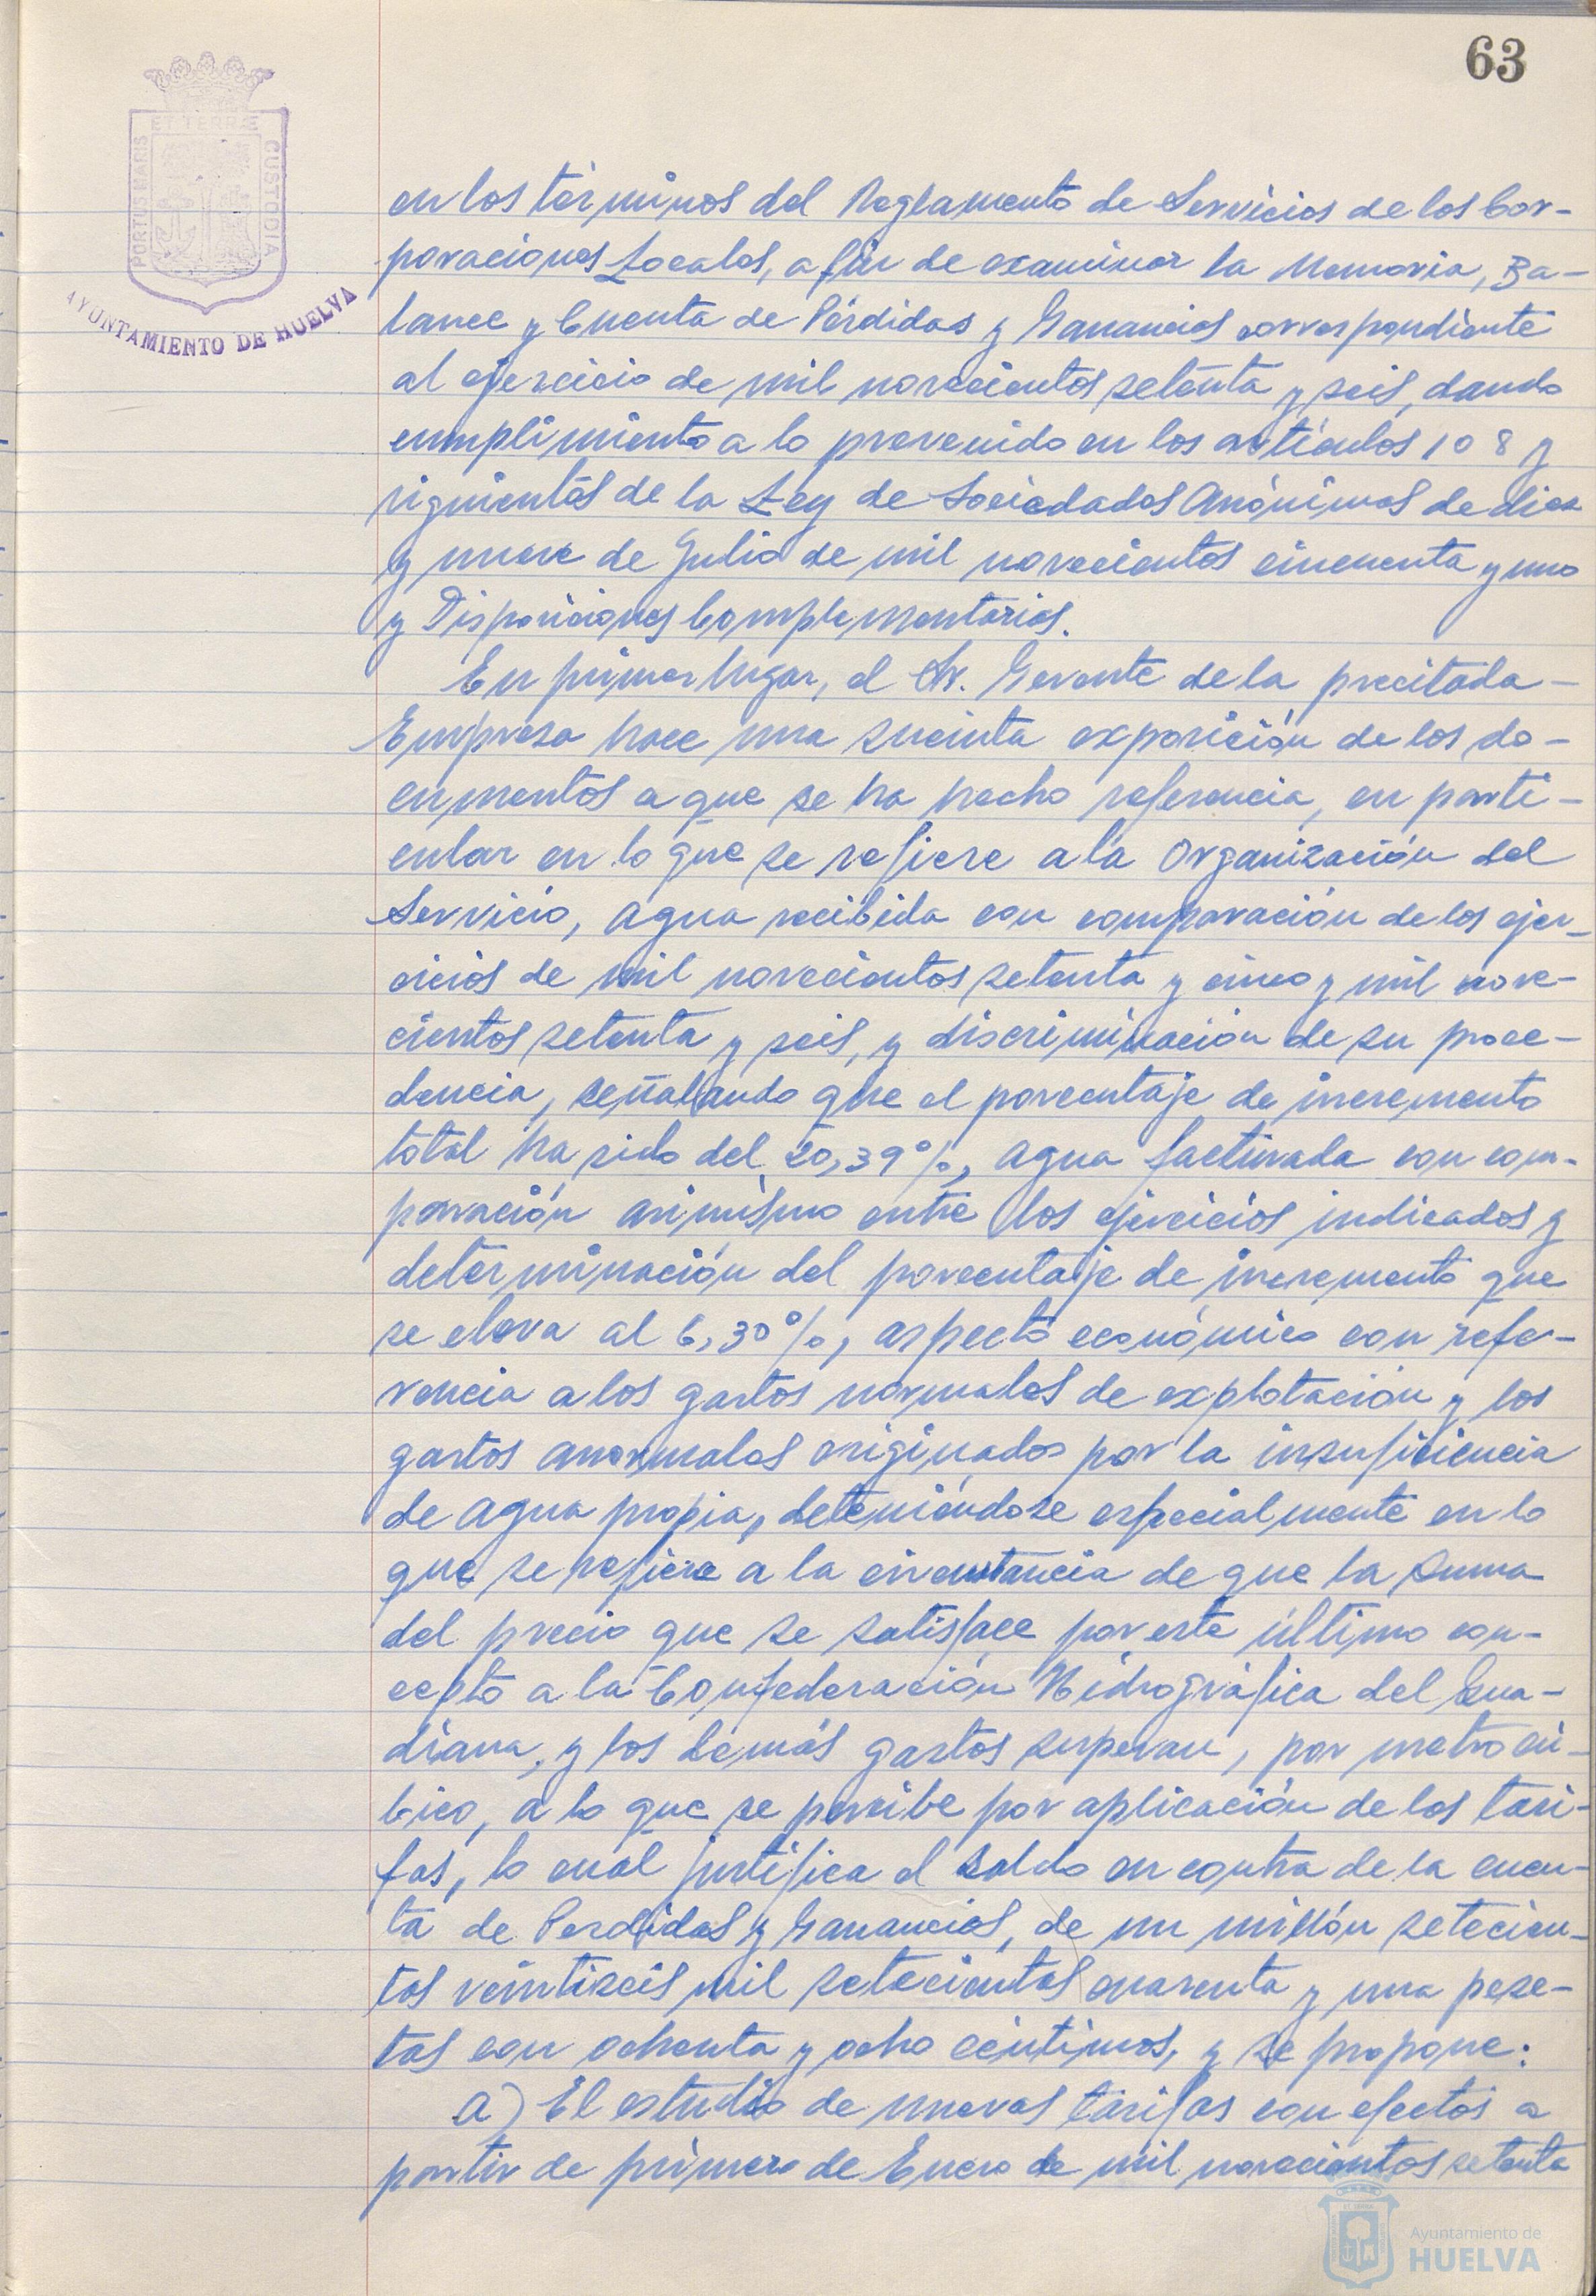 63
ET TERRÆ
PORTUS MARIS
CUSTODIA
AYUNTAMIENTO DE HUELVA
en los términos del Reglamento de Servicios de las Cor-
poraciones Locales, a fin de examinar la Memoria, Ba-
lance y Cuenta de Pérdidas y Ganancias correspondiente
al ejercicio de mil novecientos setenta y seis, dando
cumplimiento a lo prevenido en los artículos 108 y
siguientes de la Ley de Sociedades Anónimas de diez
y nueve de Julio de mil novecientos cincuenta y uno
y Disposiciones Complementarias.
En primer lugar, el Sr. Gerente de la precitada-
Empresa hace una sucinta exposición de los do-
cumentos a que se ha hecho referencia, en parti-
cular en lo que se refiere a la Organización del
Servicio, agua recibida con comparación de los ejer-
cicios de mil novecientos setenta y cinco y mil nove-
cientos setenta y seis, y discriminación de su proce-
dencia, señalando que el porcentaje de incremento
total ha sido del 20,39%, agua facturada con com-
paración asimismo entre los ejercicios indicados y
determinación del porcentaje de incremento que
se eleva al 6,30%, aspecto económico con refe-
rencia a los gastos normales de explotación y los
gastos anormales originados por la insuficiencia
de agua propia, deteniéndose especialmente en lo
que se refiere a la circunstancia de que la suma
del precio que se satisface por este último con-
cepto a la Confederación Hidrográfica del Gua-
diana, y los demás gastos superan, por metro cú-
bico, a lo que se percibe por aplicación de las tari-
fas, lo cual justifica el saldo en contra de la cuen-
ta de Perdidas y Ganancias, de un millón setecien-
tas veintiseis mil setecientas cuarenta y una pese-
tas con ochenta y ocho céntimos, y se propone:
a) El estudio de nuevas tarifas con efectos a
partir de primero de Enero de mil novecientos setenta
Ayuntamiento de
HUELVA